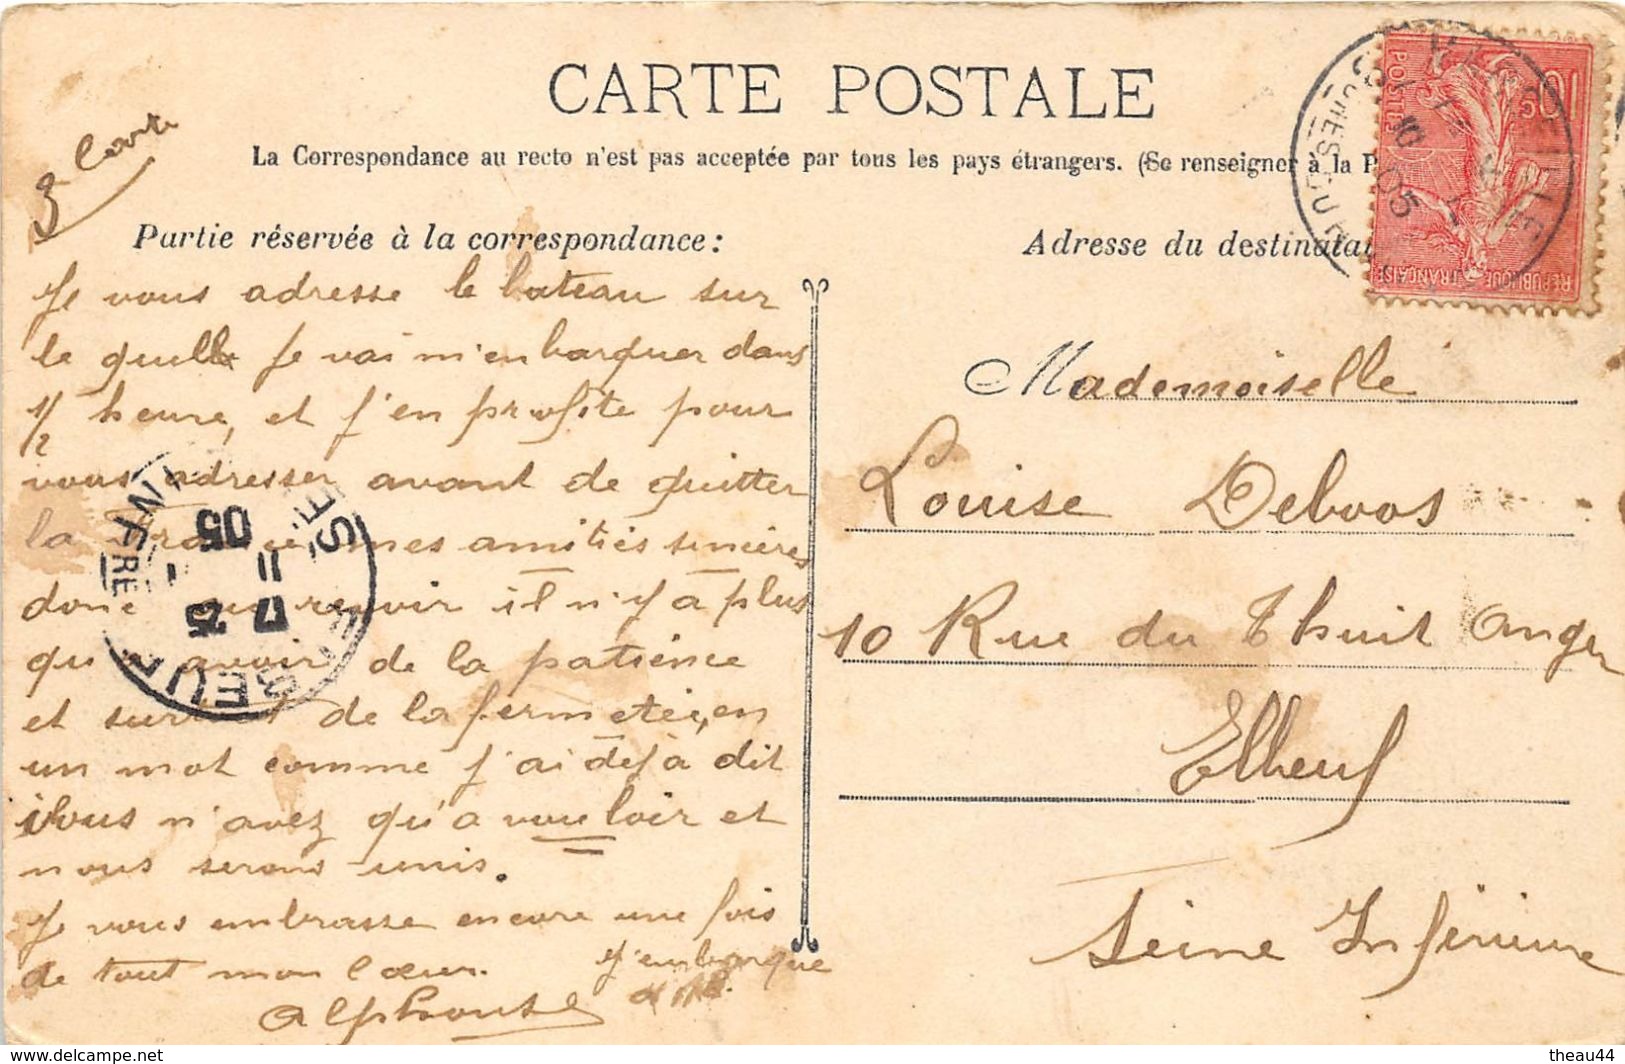 CARTE POSTALE
La Correspondance au recto n'est pas acceptée par tous les pays étrangers. (Se renseigner à la P
3 Carte
Partie réservée à la correspondance:
Je vous adresse le bateau sur
le quelle Je vai m'enbarquer dans
1/2 heure, et j'en profite pour
vous adresser avant de quitter
la mes amitiés sincères
donc au revoir il n'y a plus
qu avoir de la patience
et surtout de la fermetée, en
un mot comme j'ai déjà dit
vous n'avez qu'a vouloir et
nous serons unis.
Je vous embrasse encore une fois
de tout mon cœur. J'embarque
Alphonse
Adresse du destinatai
Mademoiselle
Louise Delvoos
10 Rue du Thuit Anger
Elbeuf
Seine Inférieure
10c
POSTES
REPUBLIQUE FRANÇAISE
MARSEILLE
05
ELBEUF
INFRE
17 25
11
05
delcampe.net
theau44